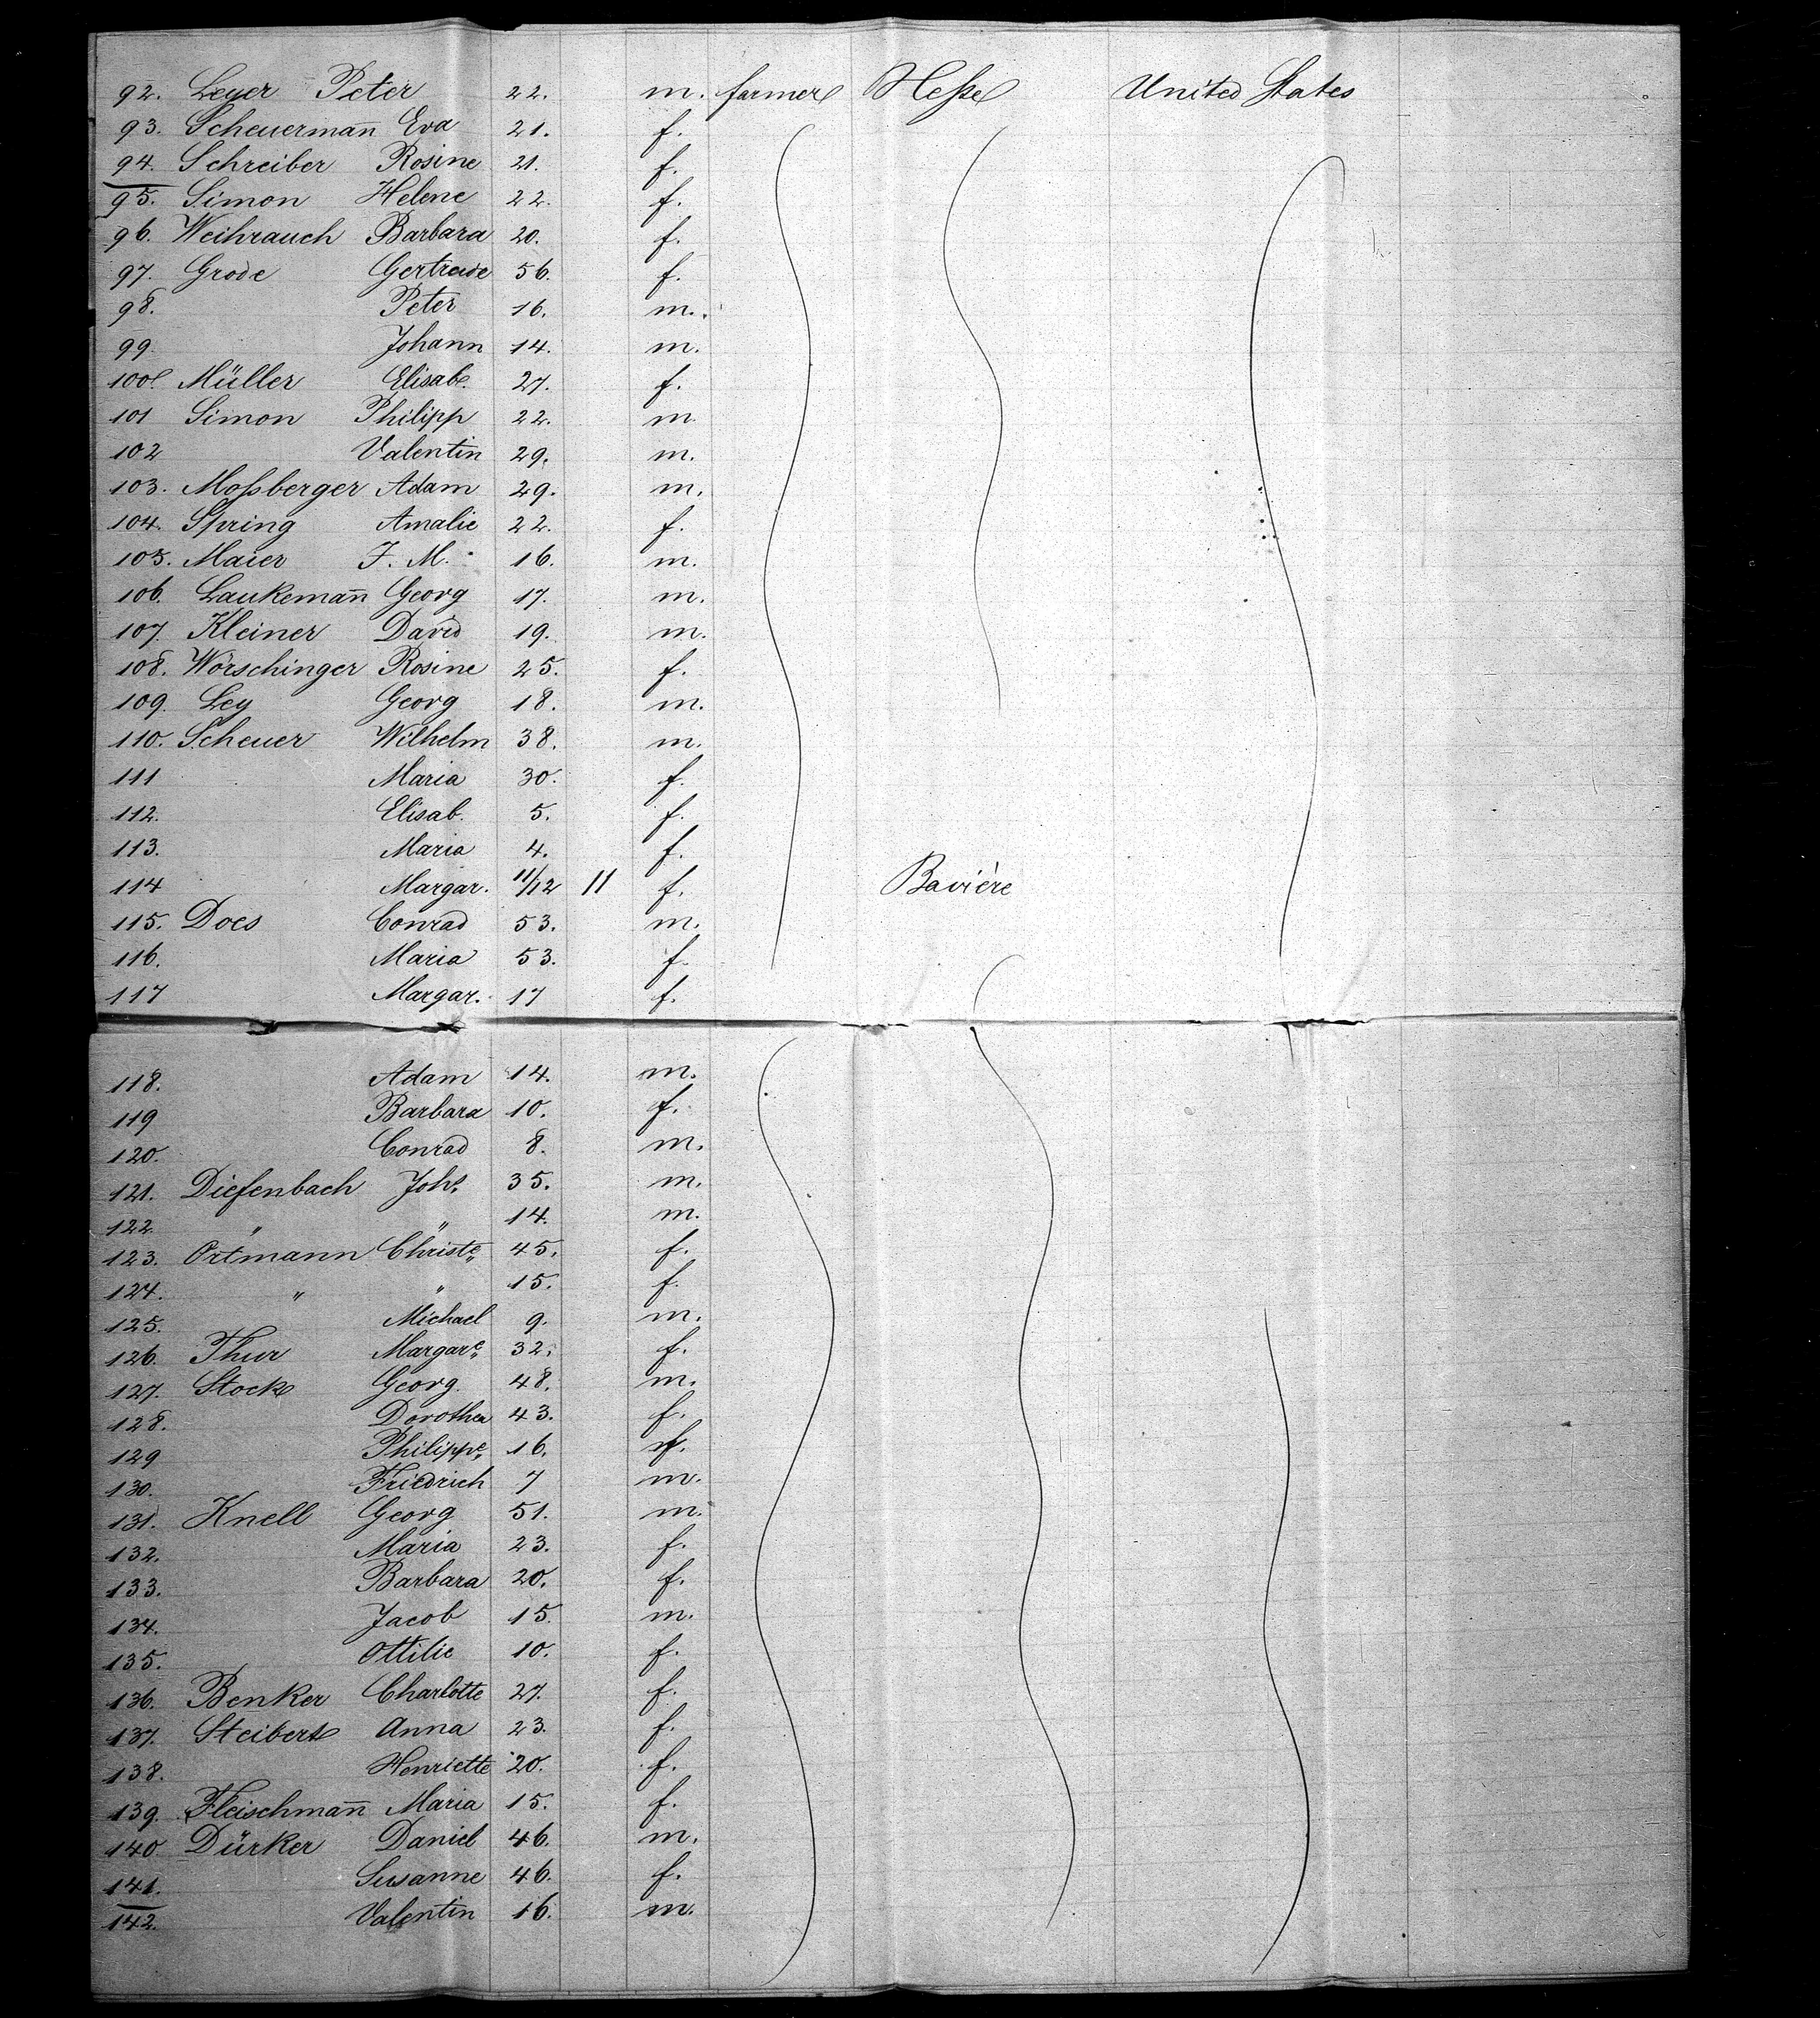 92. Leyer Peter 22. m. farmer Heße United States
93. Scheuermann̄ Eva 21. f.
94. Schreiber Rosine 21. f.
95. Simon Helene 22. f.
96. Weihrauch Barbara 20. f.
97. Grode Gertrude 56. f.
98. Peter 16. m.
99 Johann 14. m.
100. Müller Elisab. 27. f.
101 Simon Philipp 22. m.
102 Valentin 29. m.
103. Moßberger Adam 29. m.
104. Spring Amalie 22. f.
105. Maier J. M. 16. m.
106. Laukeman̄ Georg 17. m.
107. Kleiner David 19. m.
108. Wörschinger Rosine 25. f.
109. Ley Georg 18. m.
110. Scheuer Wilhelm 38. m.
111 Maria 30. f.
112. Elisab. 5. f.
113. Maria 4. f.
114 Margar. 11/12 11 f. Bavière
115. Does Conrad 53. m.
116. Maria 53. f.
117 Margar. 17 f.
118. Adam 14. m.
119 Barbara 10. f.
120. Conrad 8. m.
121. Diefenbach Johs. 35. m.
122 " " 14. m.
123. Ortmann Christe 45. f.
124. " " 15. f.
125. Michael 9. m.
126. Thur Margare 32. f.
127. Stock Georg. 48. m.
128. Dorothea 43. f.
129 Philippe 16. f.
130. Friedrich 7 m.
131. Knell Georg 51. m.
132. Maria 23. f.
133. Barbara 20. f.
134. Jacob 15. m.
135. Ottilie 10. f.
136. Benker Charlotte 27. f.
137. Steibert Anna 23. f.
138. Henriette 20. f.
139. Fleischman̄ Maria 15. f.
140 Dürker Daniel 46. m.
141. Susanne 46. f.
142. Valentin 16. m.